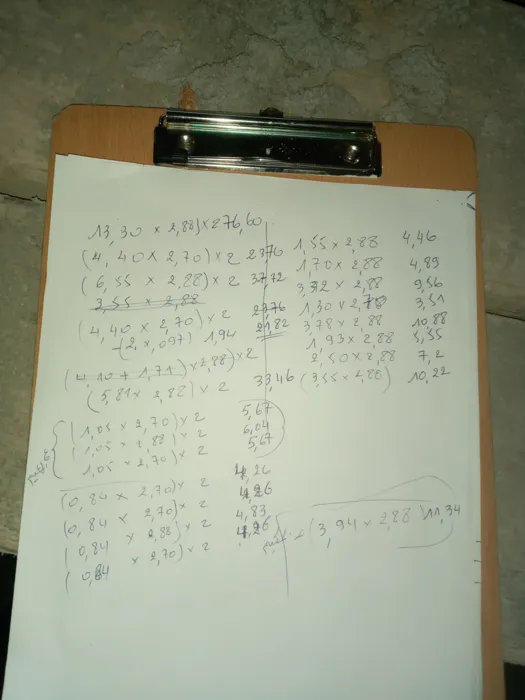 13,30 × 2,88) × 2 76,60
(4,40 × 2,70) × 2 23,76
(6,55 × 2,88) × 2 37,72
3,55 × 2,88
(4,40 × 2,70) × 2 23,76
- (2 × 0,97) 1,94 21,82
(4,10 + 1,71) × 2,88) × 2
(5,81 × 2,88) × 2 33,46
(1,05 × 2,70) × 2 5,67
(1,05 × 2,88) × 2 6,04
1,05 × 2,70) × 2 5,67
(0,84 × 2,70) × 2 4,26
(0,84 × 2,70) × 2 4,26
(0,84 × 2,88) × 2 4,83
(0,84 × 2,70) × 2 4,26
1,55 × 2,88 4,46
1,70 × 2,88 4,89
3,32 × 2,88 9,56
1,30 × 2,70 3,51
3,78 × 2,88 10,88
1,93 × 2,88 5,55
2,50 × 2,88 7,2
(3,55 × 2,88) 10,22
(3,94 × 2,88) 11,34